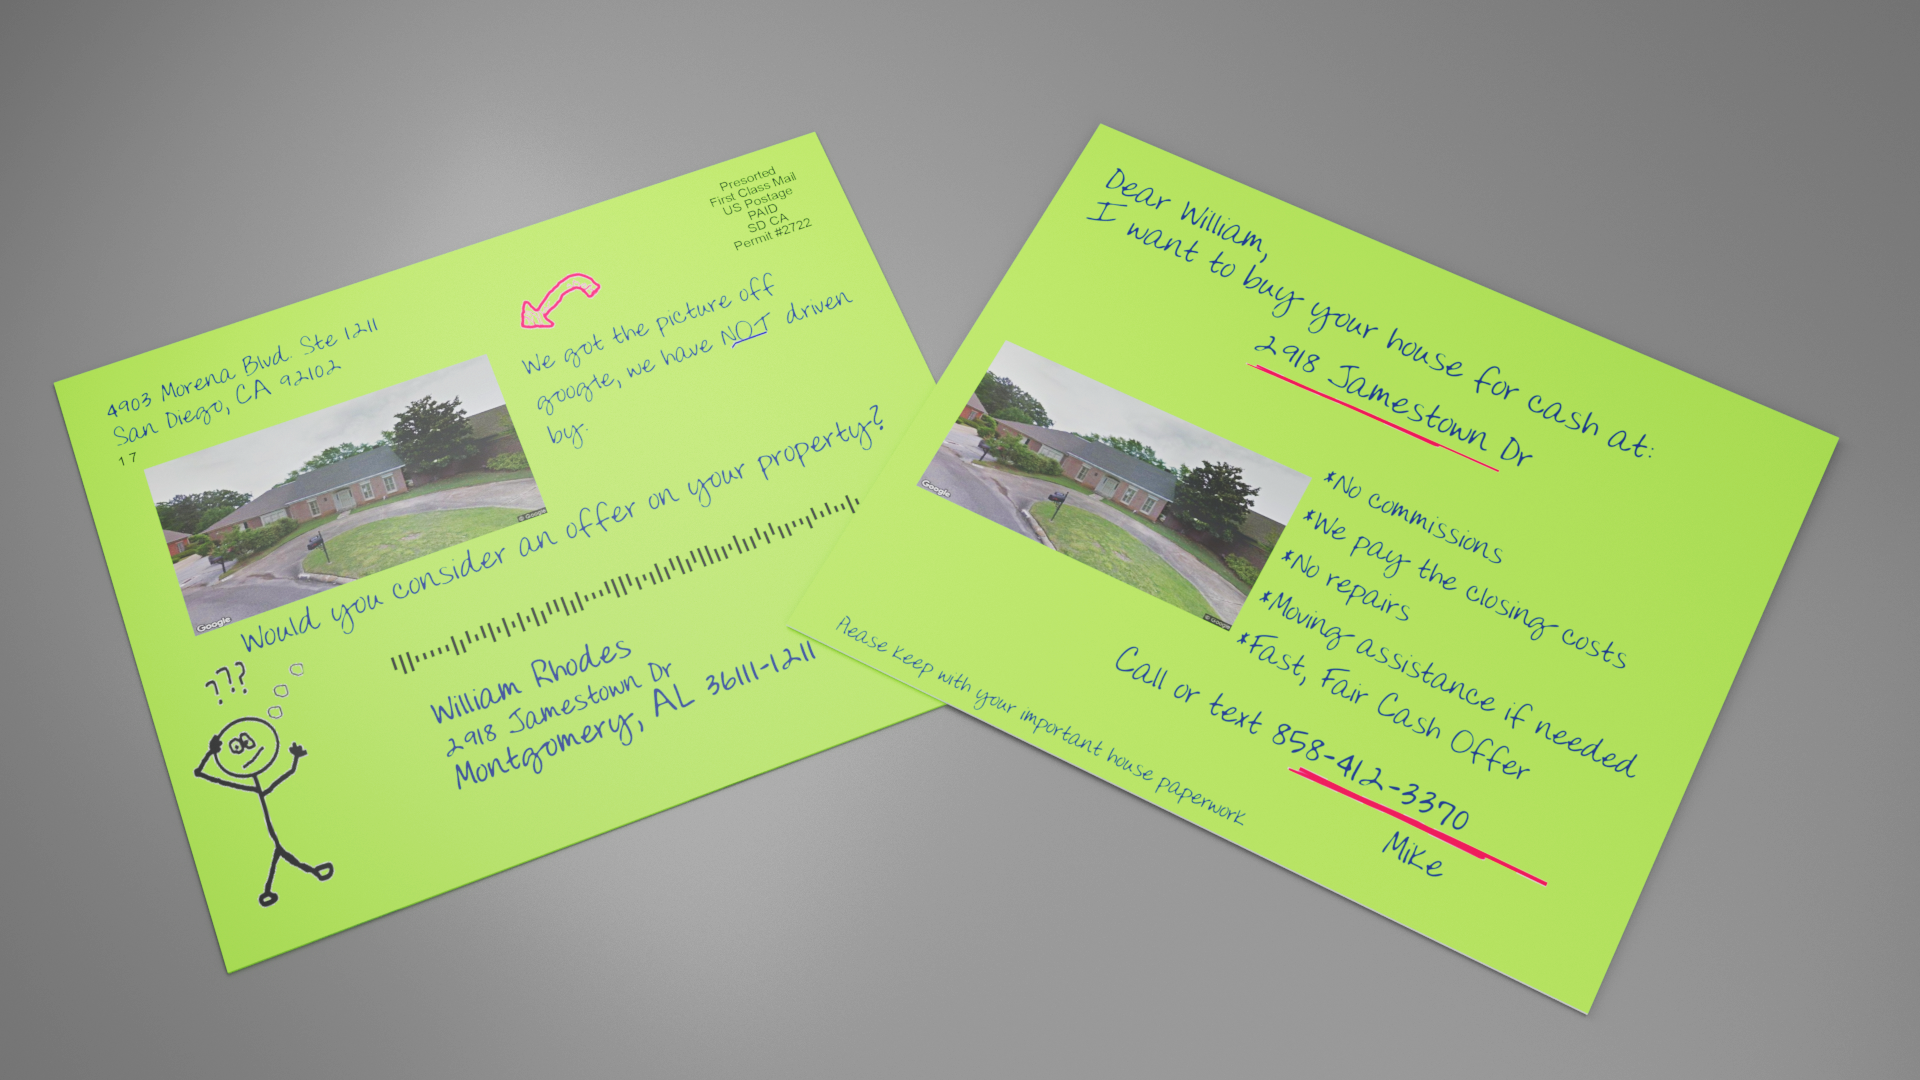 Presorted
First Class Mail
US Postage
PAID
SD CA
Permit #2722
4903 Morena Blvd. Ste 1211
San Diego, CA 92102
17
We got the picture off
google, we have NOT driven
by.
Google
© Google
Would you consider an offer on your property?
???
William Rhodes
2918 Jamestown Dr
Montgomery, AL 36111-1211
Dear William,
I want to buy your house for cash at:
2918 Jamestown Dr
Google
© Google
*No commissions
*We pay the closing costs
*No repairs
*Moving assistance if needed
*Fast, Fair Cash Offer
Call or text 858-412-3370
Mike
Please keep with your important house paperwork